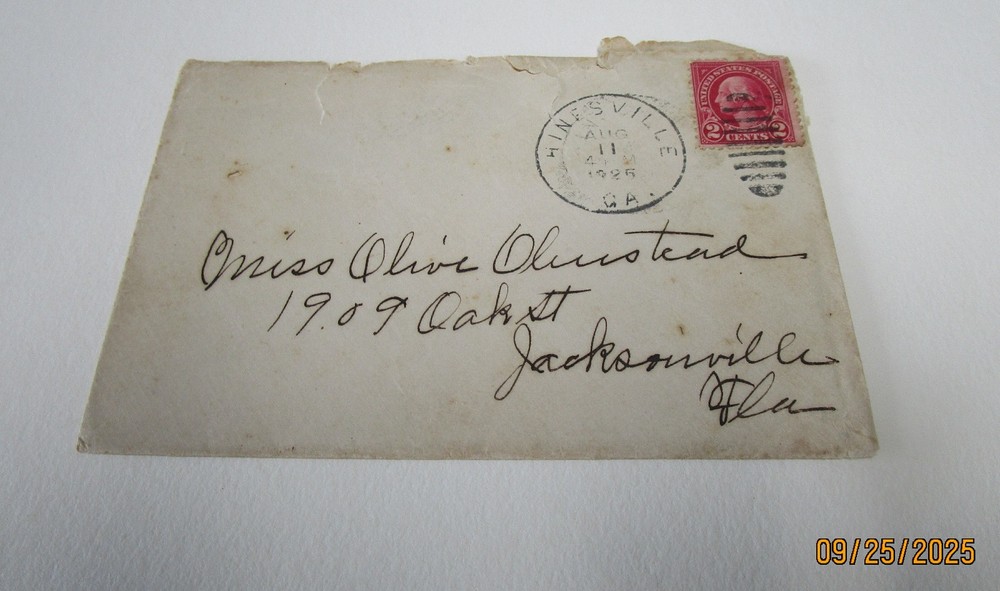 UNITED STATES POSTAGE
2 CENTS 2
HINESVILLE
AUG
11
1925
GA.
Miss Olive Olmstead
1909 Oak St
Jacksonville
Fla
09/25/2025